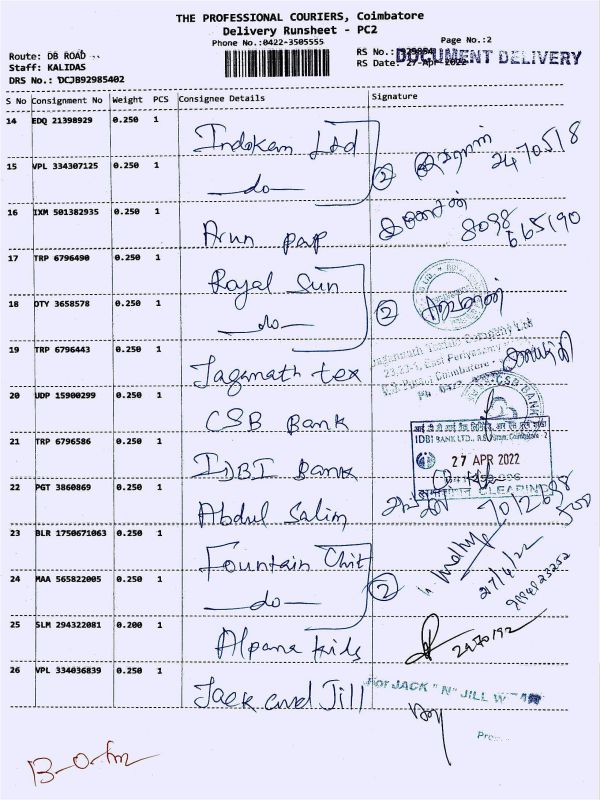 THE PROFESSIONAL COURIERS, Coimbatore
Delivery Runsheet - PC2
Phone No.:0422-3505555
Page No.:2
Route: DB ROAD
Staff: KALIDAS
DRS No.: DCJB92985402
RS No.:
RS Date: 27-Apr-2022
DOCUMENT DELIVERY
S No Consignment No Weight PCS Consignee Details Signature
14 EDQ 21398929 0.250 1 Indokem Ltd 2470518
15 VPL 334307125 0.250 1 —do— 2
16 IXM 501382935 0.250 1 Arun pap 8098 665190
17 TRP 6796490 0.250 1 Royal Sun
18 DTY 3658578 0.250 1 —do— 2
19 TRP 6796443 0.250 1 Jaganath tex
20 UDP 15900299 0.250 1 CSB Bank
CSB BANK
21 TRP 6796586 0.250 1 IDBI Bank
IDBI BANK LTD., R.S. Puram, Coimbatore - 2
27 APR 2022
CLEARING
22 PGT 3860869 0.250 1 Abdul Salim
23 BLR 1750671063 0.250 1 Fountain Chit
27/4/22
24 MAA 565822005 0.250 1 —do— 2
25 SLM 294322081 0.200 1 Alpana kids
26 VPL 334036839 0.250 1 Jack and Jill
For JACK "N" JILL